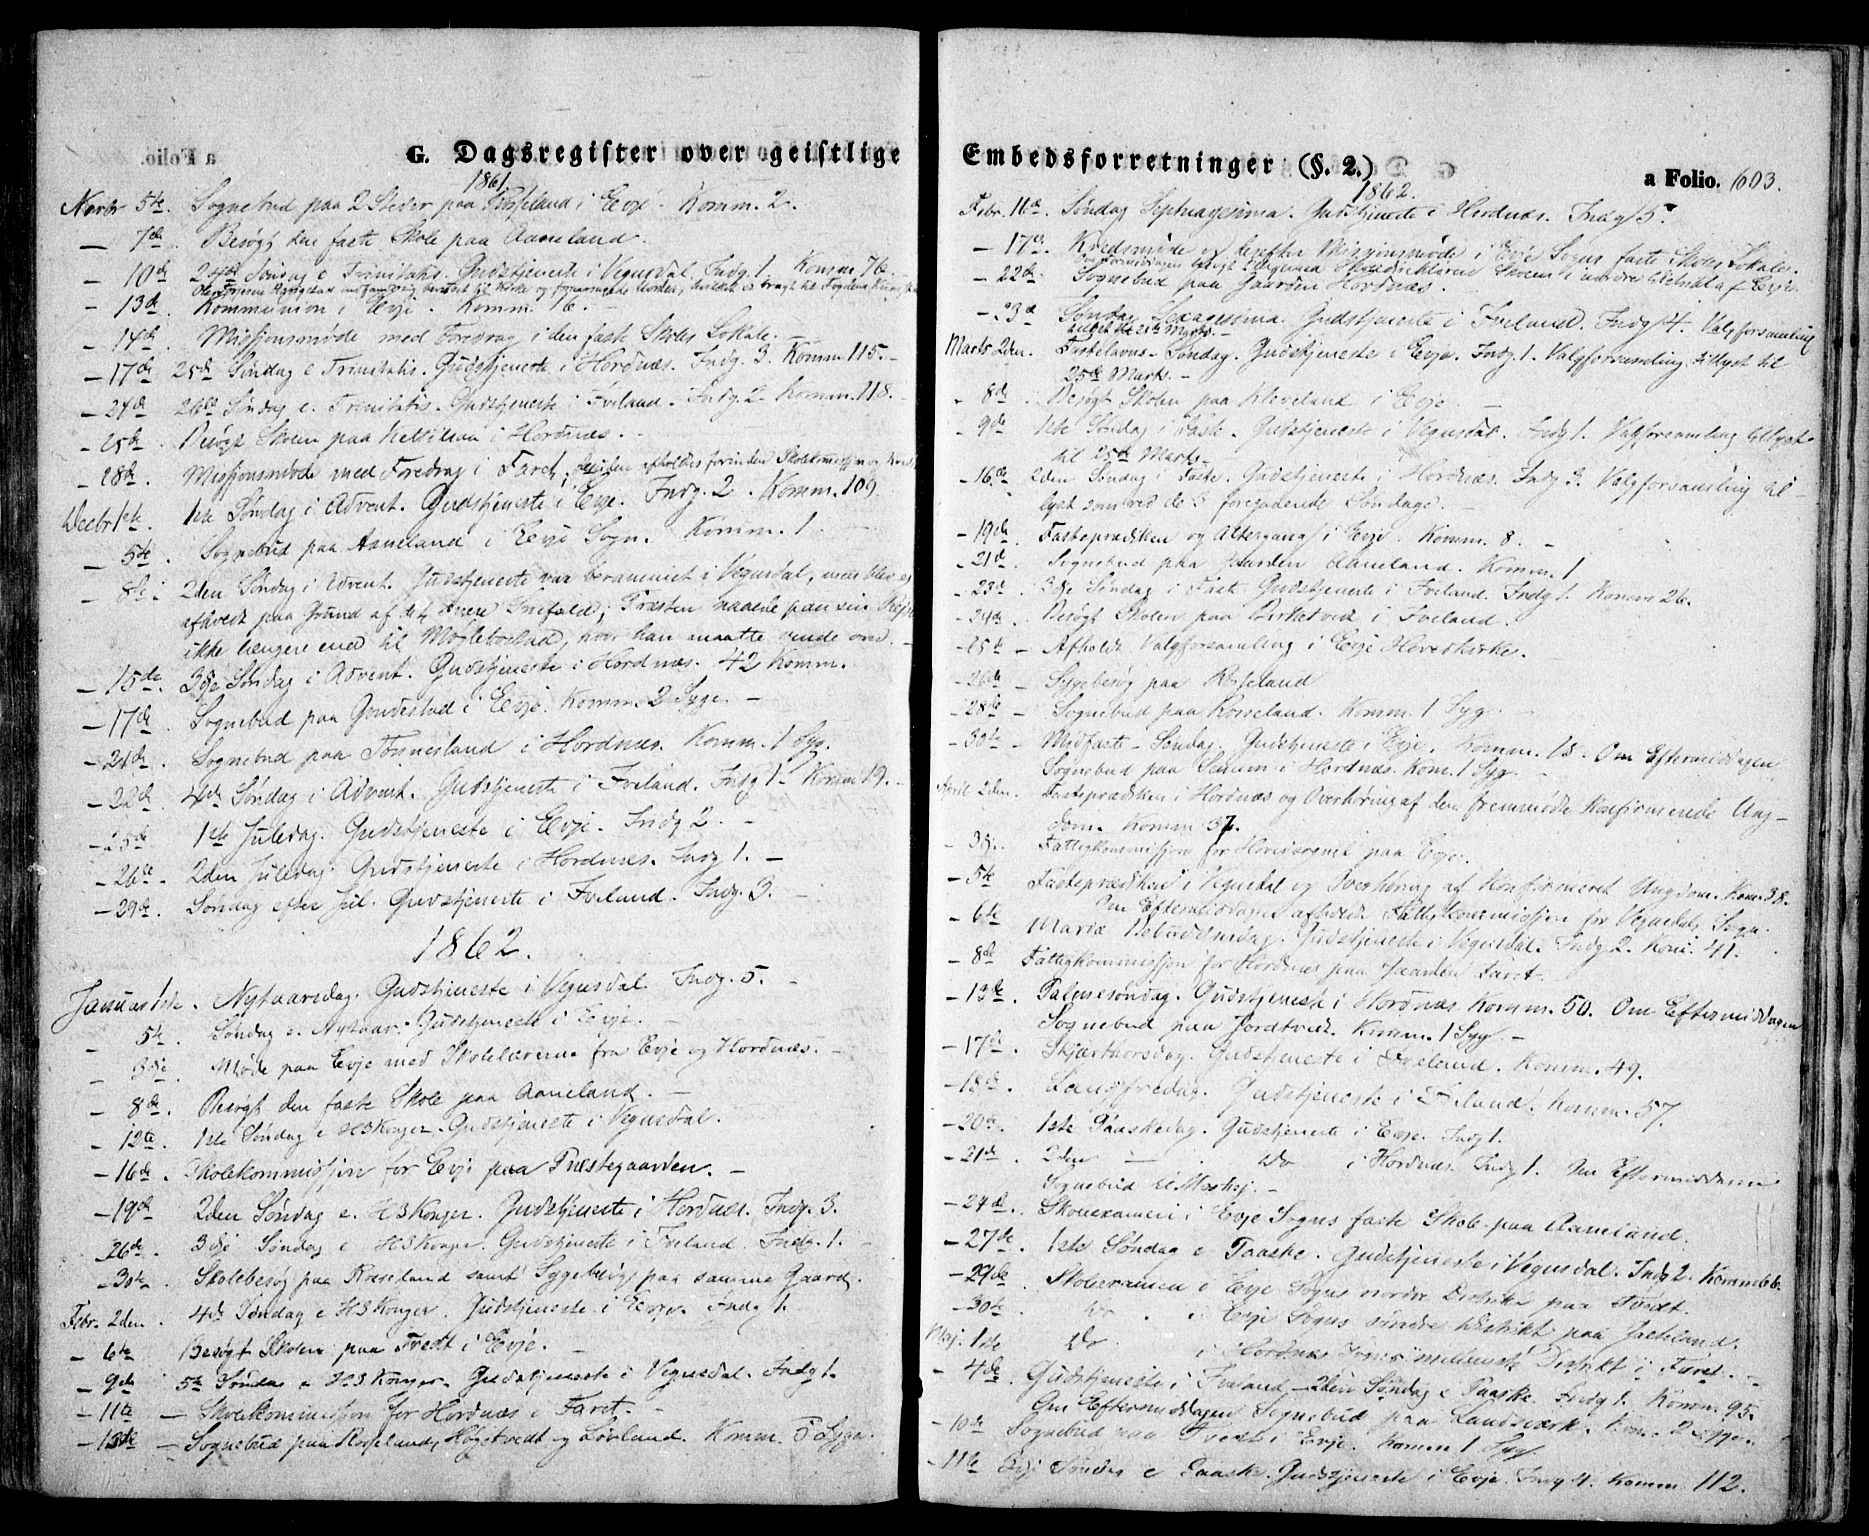 a Folio.
G. Dagsregister over geistlige
1861
Novbr 5te. Sognebud paa 2 Steder paa Rosseland i Evje. Komm. 2.
— 7de. Besøgt den faste Skole paa Aaneland.
— 10de 24de Søndag e Trinitatis. Gudstjeneste i Vegusdal. Indg. 1. Komm. 76.
— 13de Kommunion i Evje. Komm. 16. —
— 14de Missjonsmøde med Foredrag i den faste Skoles Lokale. —
— 17de 25de Søndag e Trinitatis. Gudstjeneste i Hordnæs. Indg. 3. Komm. 115. —
— 24de 26de Søndag e. Trinitatis. Gudstjeneste i Iveland. Indg. 2. Komm. 118. —
— 25de Besøgt Skolen paa Ketilsaa i Hordnæs. —
— 28de Missjonsmøde med Foredrag i Faret, afholdtes forinden Skolekommissjon og
Decbr 1ste. 1ste Søndag i Advent. Gudstjeneste i Evje. Indg. 2. Komm. 109
— 5te. Sognebud paa Aaneland i Evje Sogn. Komm. 1 —
— 8de. 2den Søndag i Advent. Gudstjeneste var berammet i Vegusdal, men blev ei
afholdt paa Grund af det Snefald; Præsten naaede paa sin Rejse
ikke længere end til Mølleboestad, hvor han maatte vende om. —
— 15de. 3die Søndag i Advent. Gudstjeneste i Hordnæs. 42 Komm.
— 17de Sognebud paa Gondestad i Evje. Komm. 2 Syge. —
— 21de. Sognebud paa Tønnesland i Hordnæs. Komm. 1 Syg.
— 22de. 4de Søndag i Advent. Gudstjeneste i Iveland. Indg 1. Komm 19. —
— 25de 1ste Juledag. Gudstjeneste i Evje. Indg 2. —
— 26de. 2den Juledag. Gudstjeneste i Hordnæs. Indg 1. —
— 29de Søndag efter Jul. Gudstjeneste i Iveland. Indg. 3. —
1862.
Januar 1ste. Nytaarsdag. Gudstjeneste i Vegusdal. Indg. 5. —
— 5te. Søndag e. Nytaar. Gudstjeneste i Evje. —
— 3die Møde paa Evje med Skolelærerne fra Evje og Hordnæs. —
— 8de. Besøgt den faste Skole paa Aaneland. —
— 12te. 1ste Søndag e H3Konger. Gudstjeneste i Vegusdal.
— 16de. Skolekommissjon for Evje paa Præstegaarden. —
— 19de 2den Søndag e. H3Konger. Gudstjeneste i Hordnæs. Indg. 3.
— 26de. 3die Søndag e H3Konger. Gudstjeneste i Iveland Indg. 1. —
— 30te Skolebesøg paa Rosseland samt Sygebesøg paa samme Gaard.
Febr. 2den. 4de Søndag e H3Konger. Gudstjeneste i Evje. Indg 1.
— 6te Besøgt Skolen paa Tvedt i Evje. —
— 9de 5te Søndag e H3Konger. Gudstjeneste i Vegusdal. Indg 1.
— 11te — Skolekommissjon for Hordnæs i Faret. —
— 13de — Sognebud paa Rosseland, Høgetvedt og Løvland. Komm. Syge.
Embedsforretninger (§. 2.)
a Folio. 603.
1862.
Febr. 16de. Søndag Septuagesima. Gudstjeneste i Hordnæs. Indg 5.
— 17de. Kredsmøde og derefter Missjonsmøde i Evje Sogns faste Skoles Lokale.
— 22de Sognebud paa Gaarden Hordnæs.
— 23de Søndag Sexagesima. Gudstjeneste i Iveland. Indg 4. Valgforsamling
tillyst til 25de Marts.
Marts 2den. Fastelavns-Søndag. Gudstjeneste i Evje. Indg. 1. Valgforsamling tillyst til
25de Marts. —
— 8de Besøgt Skolen paa Kleveland i Evje. —
— 9de 1ste Søndag i Faste. Gudstjeneste i Vegusdal. Indg 1. Valgforsamling tillyst
til 25de Marts. —
— 16de 2den Søndag i Faste. Gudstjeneste i Hordnæs. Indg 3. Valgforsamling til-
lyst som ved de 3 foregaaende Søndage. —
— 19de Fasteprædiken og Altergang i Evje. Komm. 8. —
— 21de Sognebud paa Gaarden Aaneland. Komm. 1
— 23de. 3die Søndag i Faste. Gudstjeneste i Iveland. Indg 1. Komm 26.
— 24de Besøgt Skolen paa Birketvedt i Iveland.
— 25te — Afholdt Valgforsamling i Evje Hovedkirke. —
— 26de — Sygebesøg paa Rosseland
— 28de — Sognebud paa Rosseland. Komm. 1 Syg. —
— 30te — Midfaste-Søndag. Gudstjeneste i Evje. Komm. 18. Om Eftermiddagen
Sognebud paa Senum i Hordnæs. Kom. 1 Syg. —
April 2den. Fasteprædiken i Hordnæs og Overhøring af den fremmødte konfirmerede Ung-
dom. Komm 37.
— 3die. Fattigkommissjon for Hovedsognet paa Evje.
— 5te Fasteprædiken i Vegusdal og Overhøring af Konfirmeret Ungdom. Kom. 38.
Om Eftermiddagen afholdt Fattigkommissjon for Vegusdals Sogn.
— 6te Mariæ Bebudelsesdag. Gudstjeneste i Vegusdal. Indg 2. Kom. 41.
— 8de Fattigkommissjon for Hordnæs paa Gaarden Faret.
— 13de Palmesøndag. Gudstjeneste i Hordnæs Komm. 50. Om Eftermiddagen
Sognebud paa Jordtveit. Komm. 1 Syg. —
— 17de Skjærthorsdag. Gudstjeneste i Iveland. Komm. 49.
— 18de. Langfredag. Gudstjeneste i Iveland. Komm. 57.
— 20de. 1ste Paaskedag. Gudstjeneste i Evje. Indg 1.
— 21de 2den — Do i Hordnæs. Indg 1. Om Eftermiddagen
Sognebud til —
— 24de. Skoleexamen i Evje Sogns faste Skole paa Aaneland.
— 27de. 1ste Søndag e Paaske. Gudstjeneste i Vegusdal. Indg 2. Komm 66.
— 29de Skoleexamen i Evje Sogns nordre Distrikt paa Tvedt.
— 30te Do " i Evje Sogns søndre Distrikt paa
Maj. 1ste Do i Hordnæs Sogns mellemste Distrikt i Faret. —
— 4de Gudstjeneste i Iveland — 2den Søndag e Paaske. Indg 1. Komm. 95.
Om Eftermiddagen Sognebud paa Kom. 2 Syge.
— 10de Sognebud paa Tvedt i Evje. Komm 1 Syg
— 11te 3die Søndag e Paaske. Gudstjeneste i Evje. Indg 4. Komm. 112.